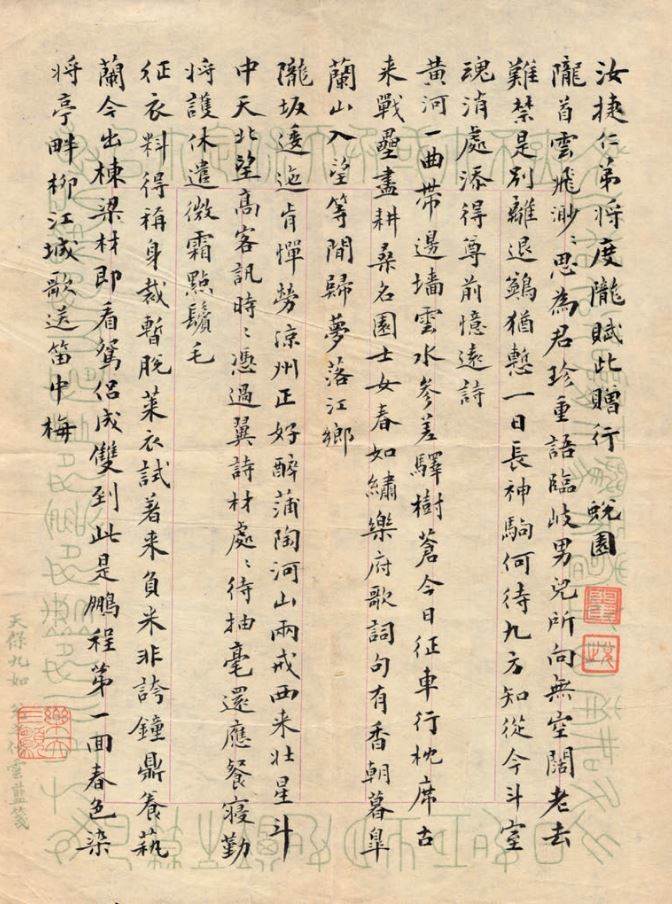 汝捷仁弟將度隴賦此贈行 蛻園
隴首雲飛渺〻思為君珍重語臨岐男兒所向無空闊老去
難禁是別離退鷁猶慙一日長神駒何待九方知從今斗室
魂消處添得尊前憶遠詩
黃河一曲帶邊墻雲水參差驛樹蒼今日征車行枕席古
来戰壘盡耕桑名園士女春如繡樂府歌詞句有香朝暮皐
蘭山入望等閒歸夢落江鄉
隴坂逶迤肯憚勞涼州正好醉蒲陶河山兩戒西来壯星斗
中天北望高客訊時〻憑過翼詩材處〻待抽毫還應餐寢勤
將護休遣微霜點鬢毛
征衣料得稱身裁暫脫萊衣試著来負米非誇鐘鼎養蓺
蘭今出棟梁材即看鴛侶成雙到此是鵬程第一囬春色染
將亭畔柳江城歌送笛中梅
天保九如